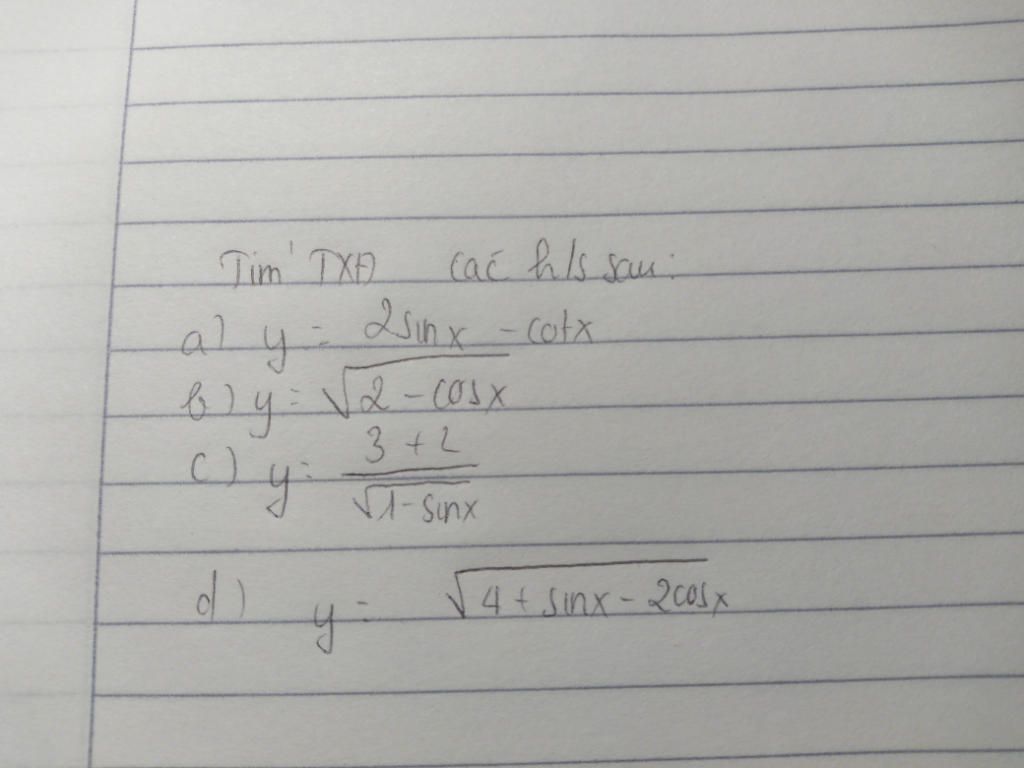 Tìm TXĐ các h/s sau:
a) y = 2sinx - cotx
b) y = √2 - cosx
c) y = 3 + 2 / √1 - sinx
d) y = √4 + sinx - 2cosx